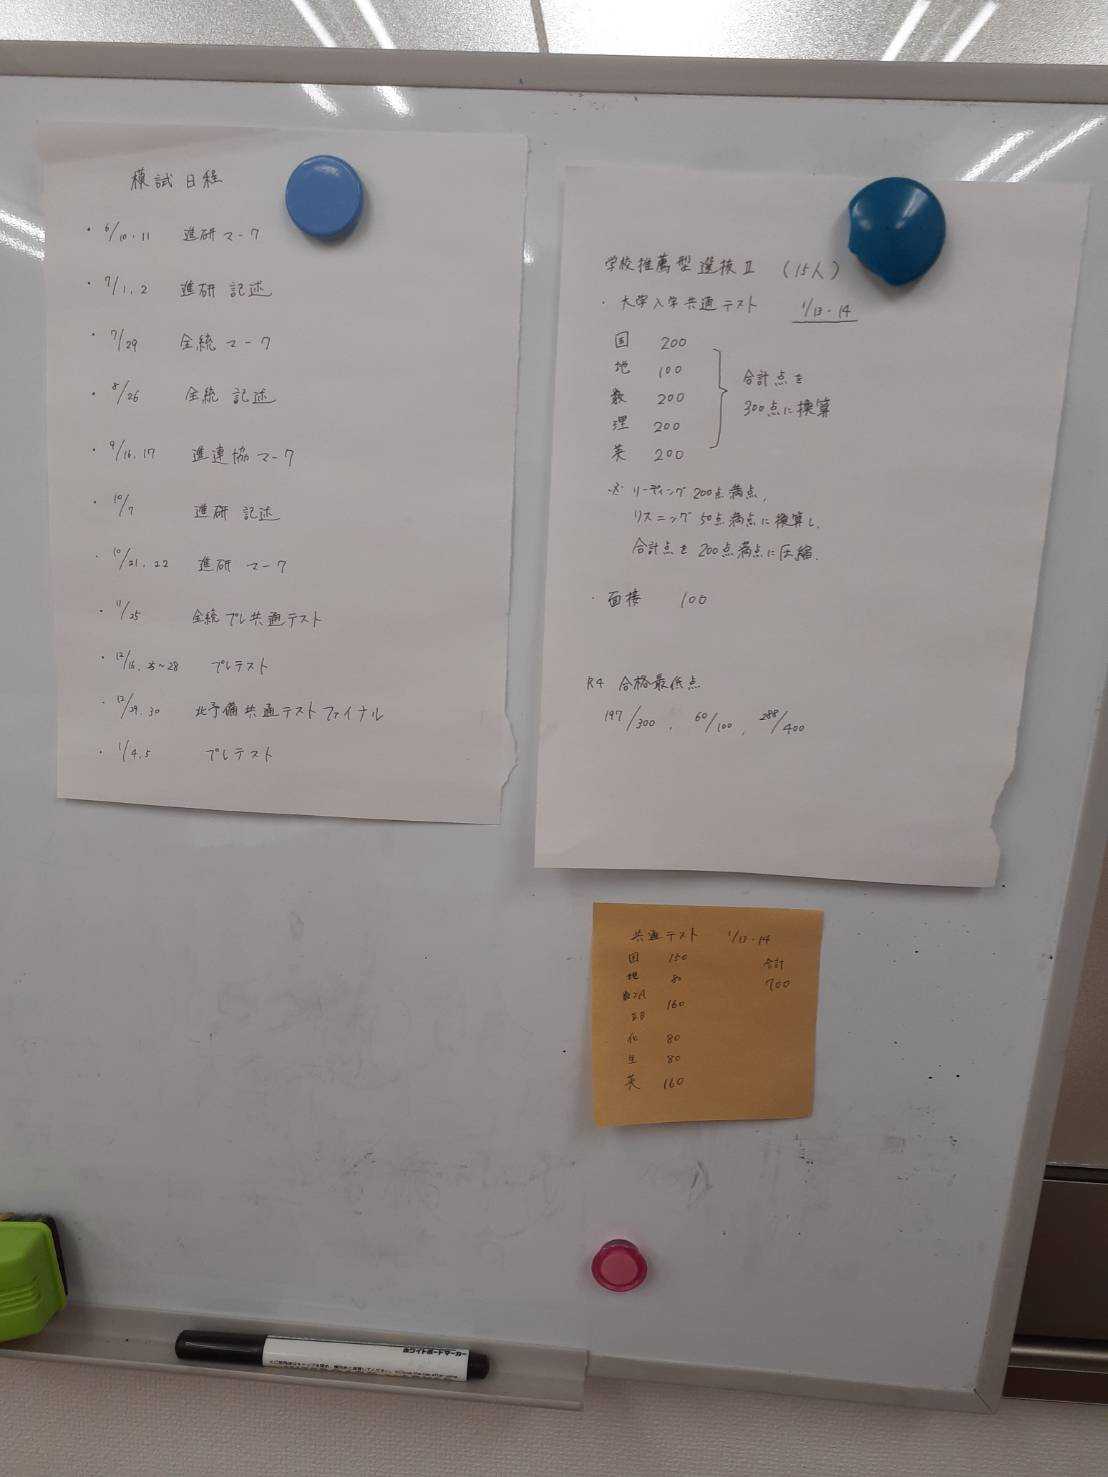 模試日程
・6/10.11 進研マーク
・7/1.2 進研 記述
・7/29 全統マーク
・8/26 全統 記述
・9/16.17 進連協マーク
・10/7 進研 記述
・10/21.22 進研 マーク
・11/25 全統プレ共通テスト
・12/16. 25~28 プレテスト
・12/29.30 北予備共通テストファイナル
・1/4.5 プレテスト
学校推薦型選抜Ⅱ (15人)
・大学入学共通テスト 1/13・14
国 200
地 100
数 200
理 200
英 200
合計点を
300点に換算
※ リーディング 200点満点,
リスニング 50点満点に換算し,
合計点を 200点満点に圧縮.
・面接 100
R4 合格最低点
197/300 , 60/100 , 288/400
共通テスト 1/13・14
国 150
地 80
数ⅠA 160
ⅡB
化 80
生 80
英 160
合計
700
ホワイトボードマーカー